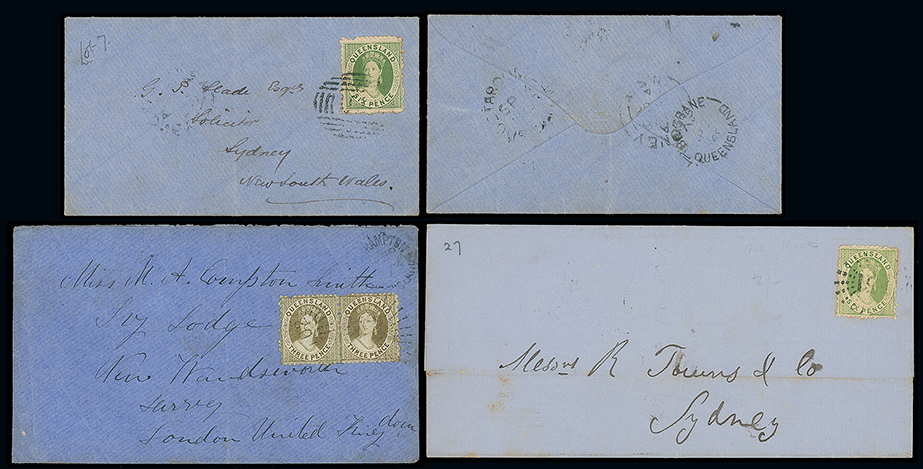 Lot 7.
QUEENSLAND
SIX PENCE
G. P. Slade Esqre
Solicitor
Sydney
New South Wales.
BRISBANE
QUEENSLAND
Miss M. A. Compton Smith
Ivy Lodge
New Wandsworth
Surrey
London United Kingdom
QUEENSLAND
THREE PENCE
QUEENSLAND
THREE PENCE
27
QUEENSLAND
SIX PENCE
Messrs R Towns & Co
Sydney